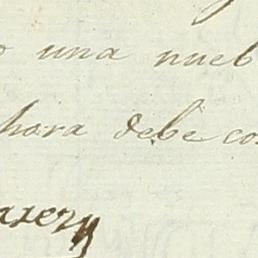 o una nueb
hora debe co
axery